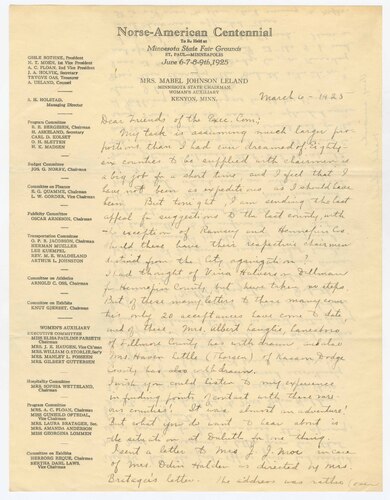 Norse-American Centennial
To Be Held at
Minnesota State Fair Grounds
ST. PAUL—MINNEAPOLIS
June 6-7-8-9th, 1925
MRS. MABEL JOHNSON LELAND
MINNESOTA STATE CHAIRMAN
WOMAN'S AUXILIARY
KENYON, MINN.
GISLE BOTHNE, President
N. T. MOEN, 1st Vice President
A. C. FLOAN, 2nd Vice President
J. A. HOLVIK, Secretary
TRYGVE OAS, Treasurer
A. UELAND, Counsel
J. H. HOLSTAD,
Managing Director
Program Committee
B. E. BERGESEN, Chairman
H. ASKELAND, Secretary
CARL D. KOLSET
O. H. SLETTEN
H. K. MADSEN
Budget Committee
JOS. G. NORBY, Chairman
Committee on Finance
E. G. QUAMME, Chairman
L. W. GORDER, Vice Chairman
Publicity Committee
OSCAR ARNESON, Chairman
Transportation Committee
O. P. B. JACOBSON, Chairman
HERMAN MUELLER
LEE KUEMPEL
REV. M. E. WALDELAND
ARTHUR L. JOHNSTON
Committee on Athletics
ARNOLD C. OSS, Chairman
Committee on Exhibits
KNUT GJERSET, Chairman
WOMEN'S AUXILIARY
EXECUTIVE COMMITTEE
MISS ELISA PAULINE FARSETH
Chairman
MRS. J. E. HAUGEN, Vice Ch'man
MRS. WILLIAM O. STORLIE, Sec'y
MRS. MANLEY L. FOSSEEN
MRS. GILBERT GUTTERSEN
Hospitality Committee
MRS. SOPHIA WETTELAND,
Chairman
Program Committee
MRS. A. C. FLOAN, Chairman
MISS GUNHILD OFTEDAL,
Vice Chairman
MRS. LAURA BRATAGER, Sec.
MRS. AMANDA ANDERSON
MISS GEORGINA LOMMEN
Committee on Exhibits
HERBORG REQUE, Chairman
BERTHA DAHL LAWS,
Vice Chairman
March 6 - 1925
Dear Friends of the Exec. Com;
My task is assuming much larger pro
portions than I had ever dreamed of. Eighty-
six counties to be supplied with chairmen is
a big job for a short time, and I feel that I
have not been as expeditious as I should have
been. But tonight, I am sending the last
appeal for suggestions to the last county, with
the exception of Ramsey and Hennepin Co
should these have their respective chairmen
from the City
I had thought of Vina Halverson Dillman
for Hennepin County, but have taken no steps.
But of these many letters to these many counties
this only 20 acceptances have come to date,
and of these, Mrs. Albert Laugen, Lanesboro
of Fillmore County has withdrawn
Mrs. Haven Little of Kasson Dodge
County has also withdrawn.
I wish you could listen to my experience
in finding points of contact with these var
ious counties! It was almost an adventure!
But what you'd want to hear about is
the situation at Duluth for one thing.
I sent a letter to Mrs. J. J. Moe in care
of Mrs. Odin Halden as directed by Mrs.
Bratager's letter. The address was rather (over